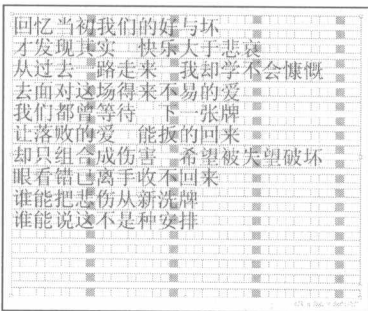 回忆当初我们的好与坏
才发现其实 快乐大于悲哀
从过去一路走来 我却学不会慷慨
去面对这场得来不易的爱
我们都曾等待 下一张牌
让落败的爱 能扳的回来
却只组合成伤害 希望被失望破坏
眼看错已离手收不回来
谁能把悲伤从新洗牌
谁能说这不是种安排